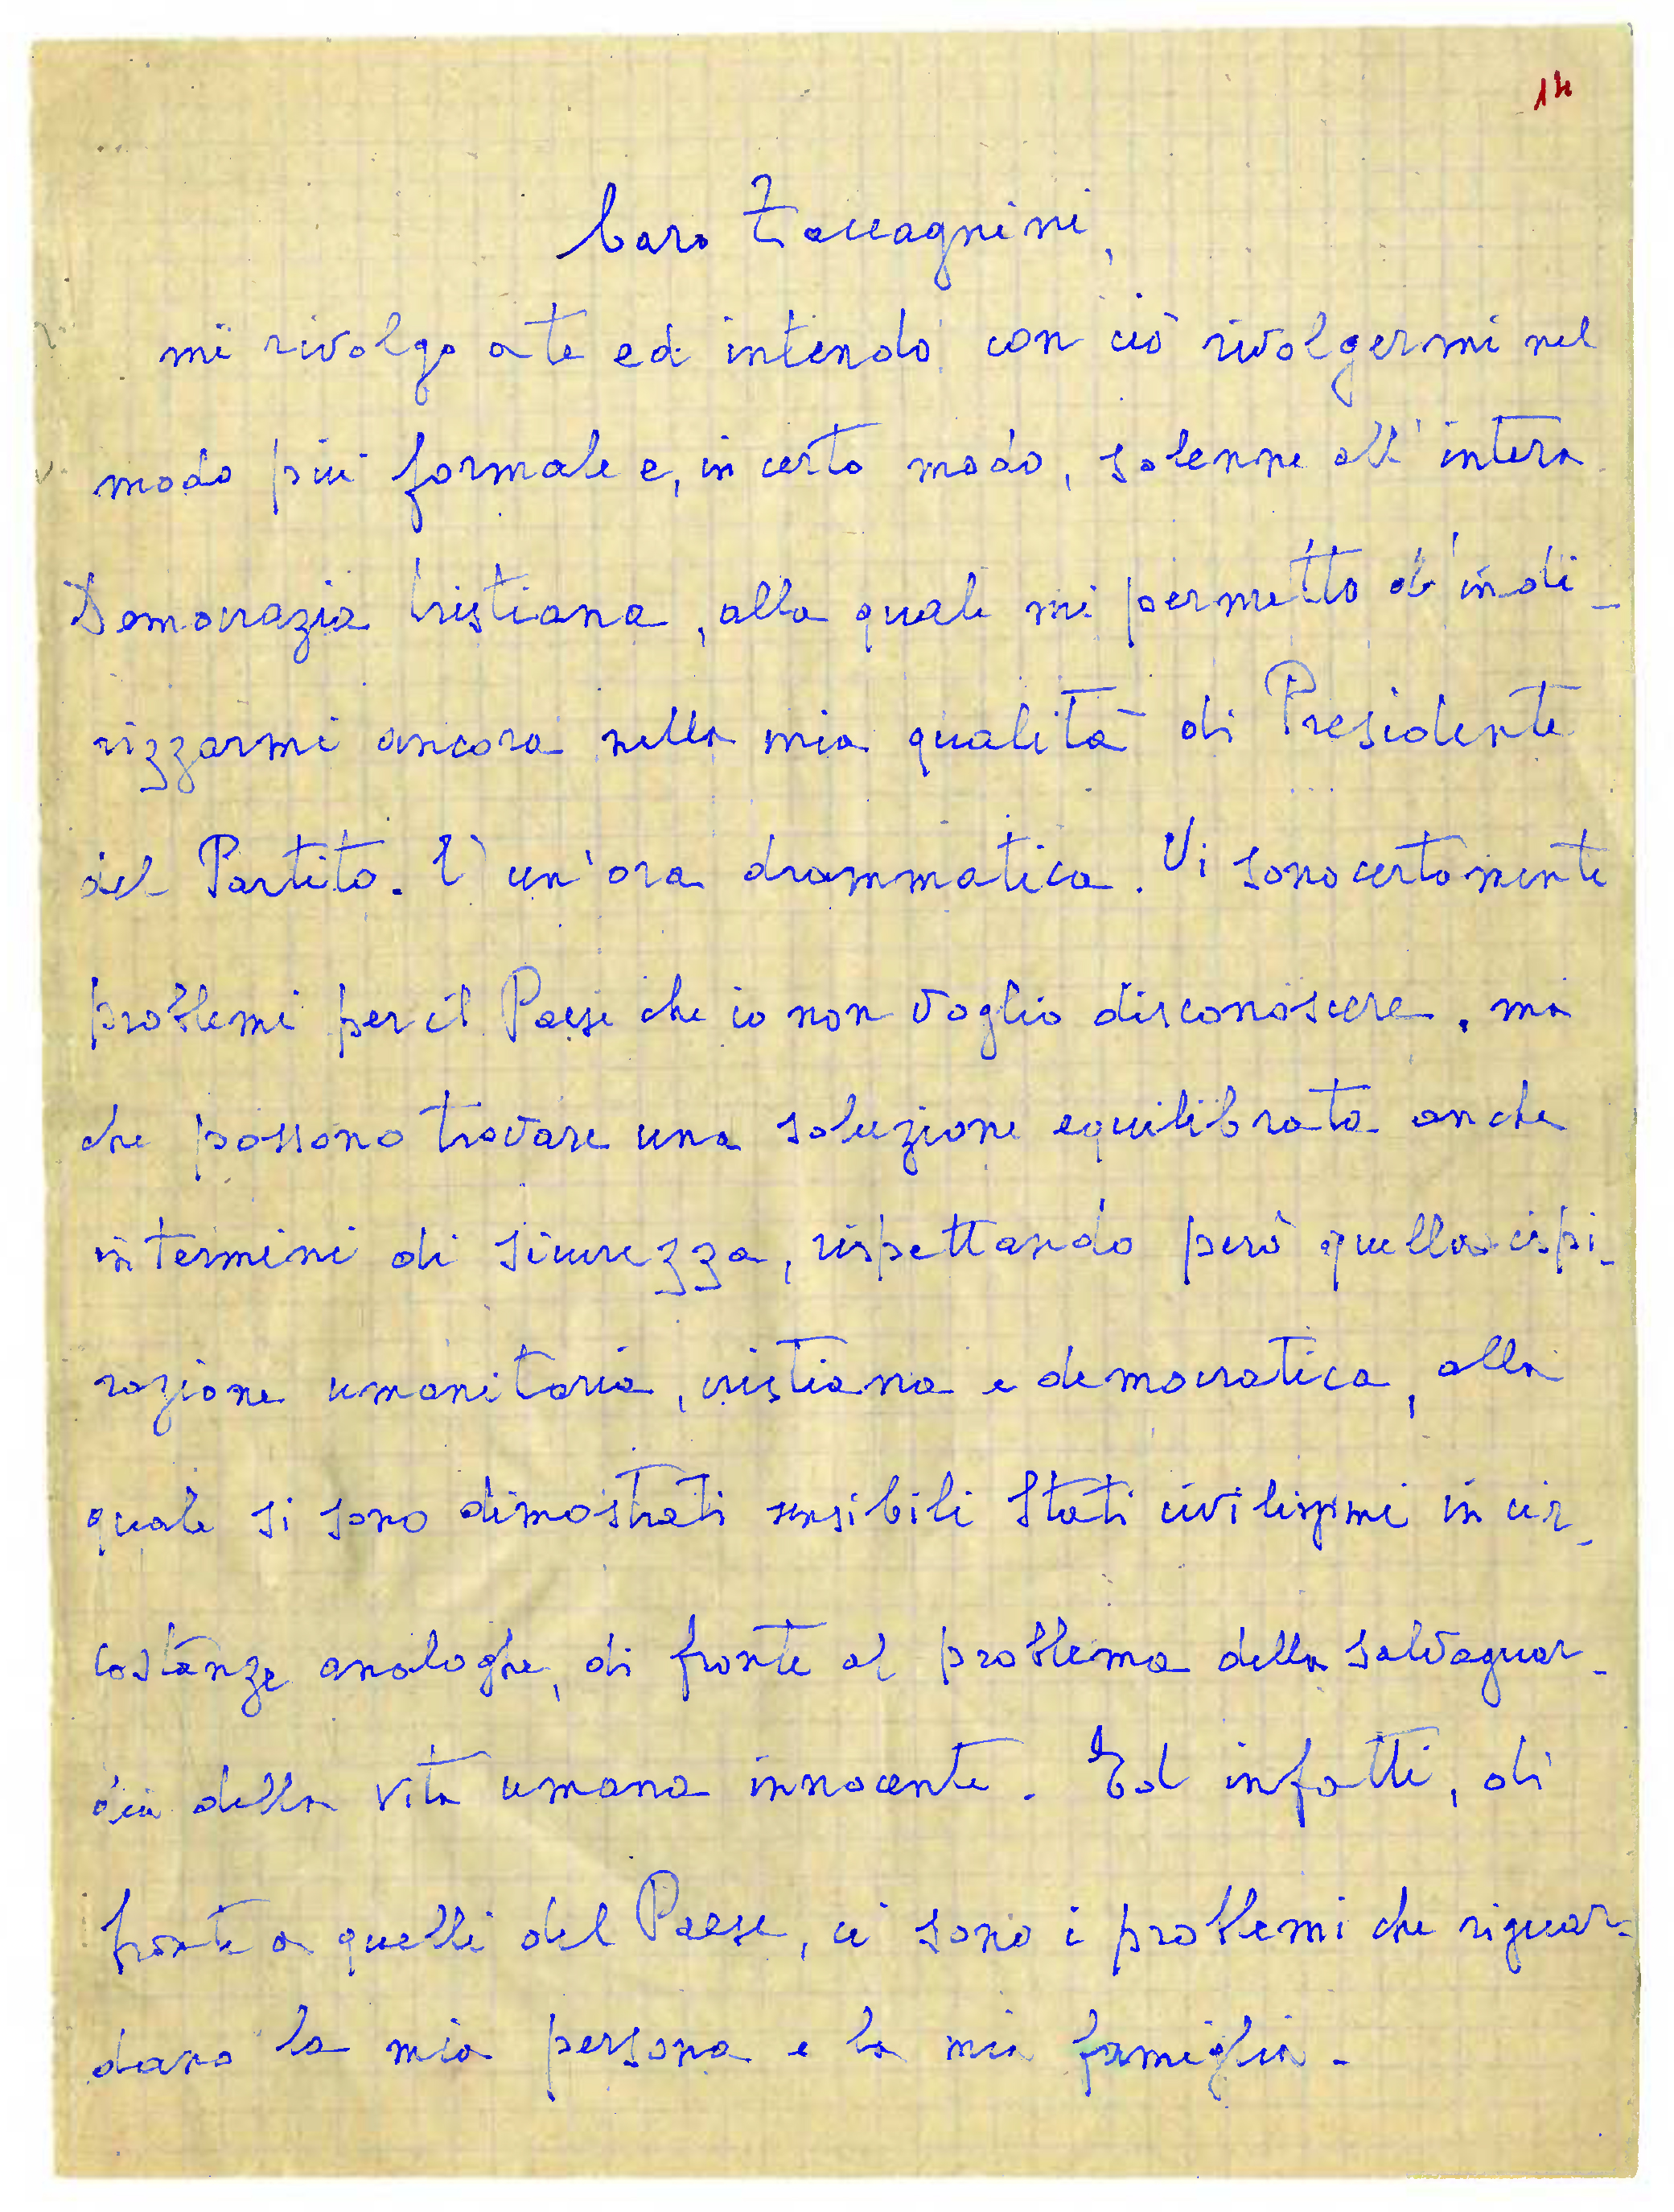 14
Caro Zaccagnini,
mi rivolgo a te ed intendo con ciò rivolgermi nel
modo più formale e, in certo modo, solenne all'intera
Democrazia Cristiana, alla quale mi permetto d'indi-
rizzarmi ancora nella mia qualità di Presidente
del Partito. È un'ora drammatica. Vi sono certamente
problemi per il Paese che io non voglio disconoscere, ma
che possono trovare una soluzione equilibrata anche
in termini di sicurezza, rispettando però quella ispi-
razione umanitaria, cristiana e democratica, alla
quale si sono dimostrati sensibili Stati civilissimi in cir-
costanze analoghe, di fronte al problema della salvaguar-
dia della vita umana innocente. Ed infatti, di
fronte a quelli del Paese, ci sono i problemi che riguar-
dano la mia persona e la mia famiglia.